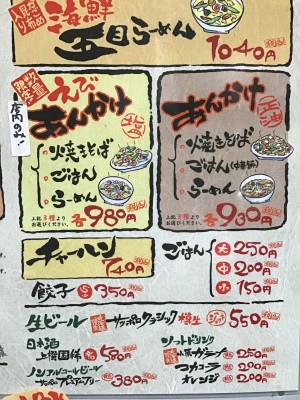 海鮮
五目らーめん
1040円
数量限定
店内のみ!!
えび
あんかけ
焼きそば
ごはん
らーめん
上記3種より
お選びください。
各980円
あんかけ
正油
焼きそば
ごはん(中華飯)
らーめん
上記3種より
お選びください。
各930円
チャーハン
740円
ごはん
大 250円
中 200円
小 150円
餃子 5コ 350円
生ビール サッポロクラシック 樽生 550円
日本酒
上撰國稀
ノンアルコールビール
サッポロプレミアムアルコールフリー 380円
ソフトドリンク
小原ガラナ 250円
コカコーラ 200円
オレンジ 200円